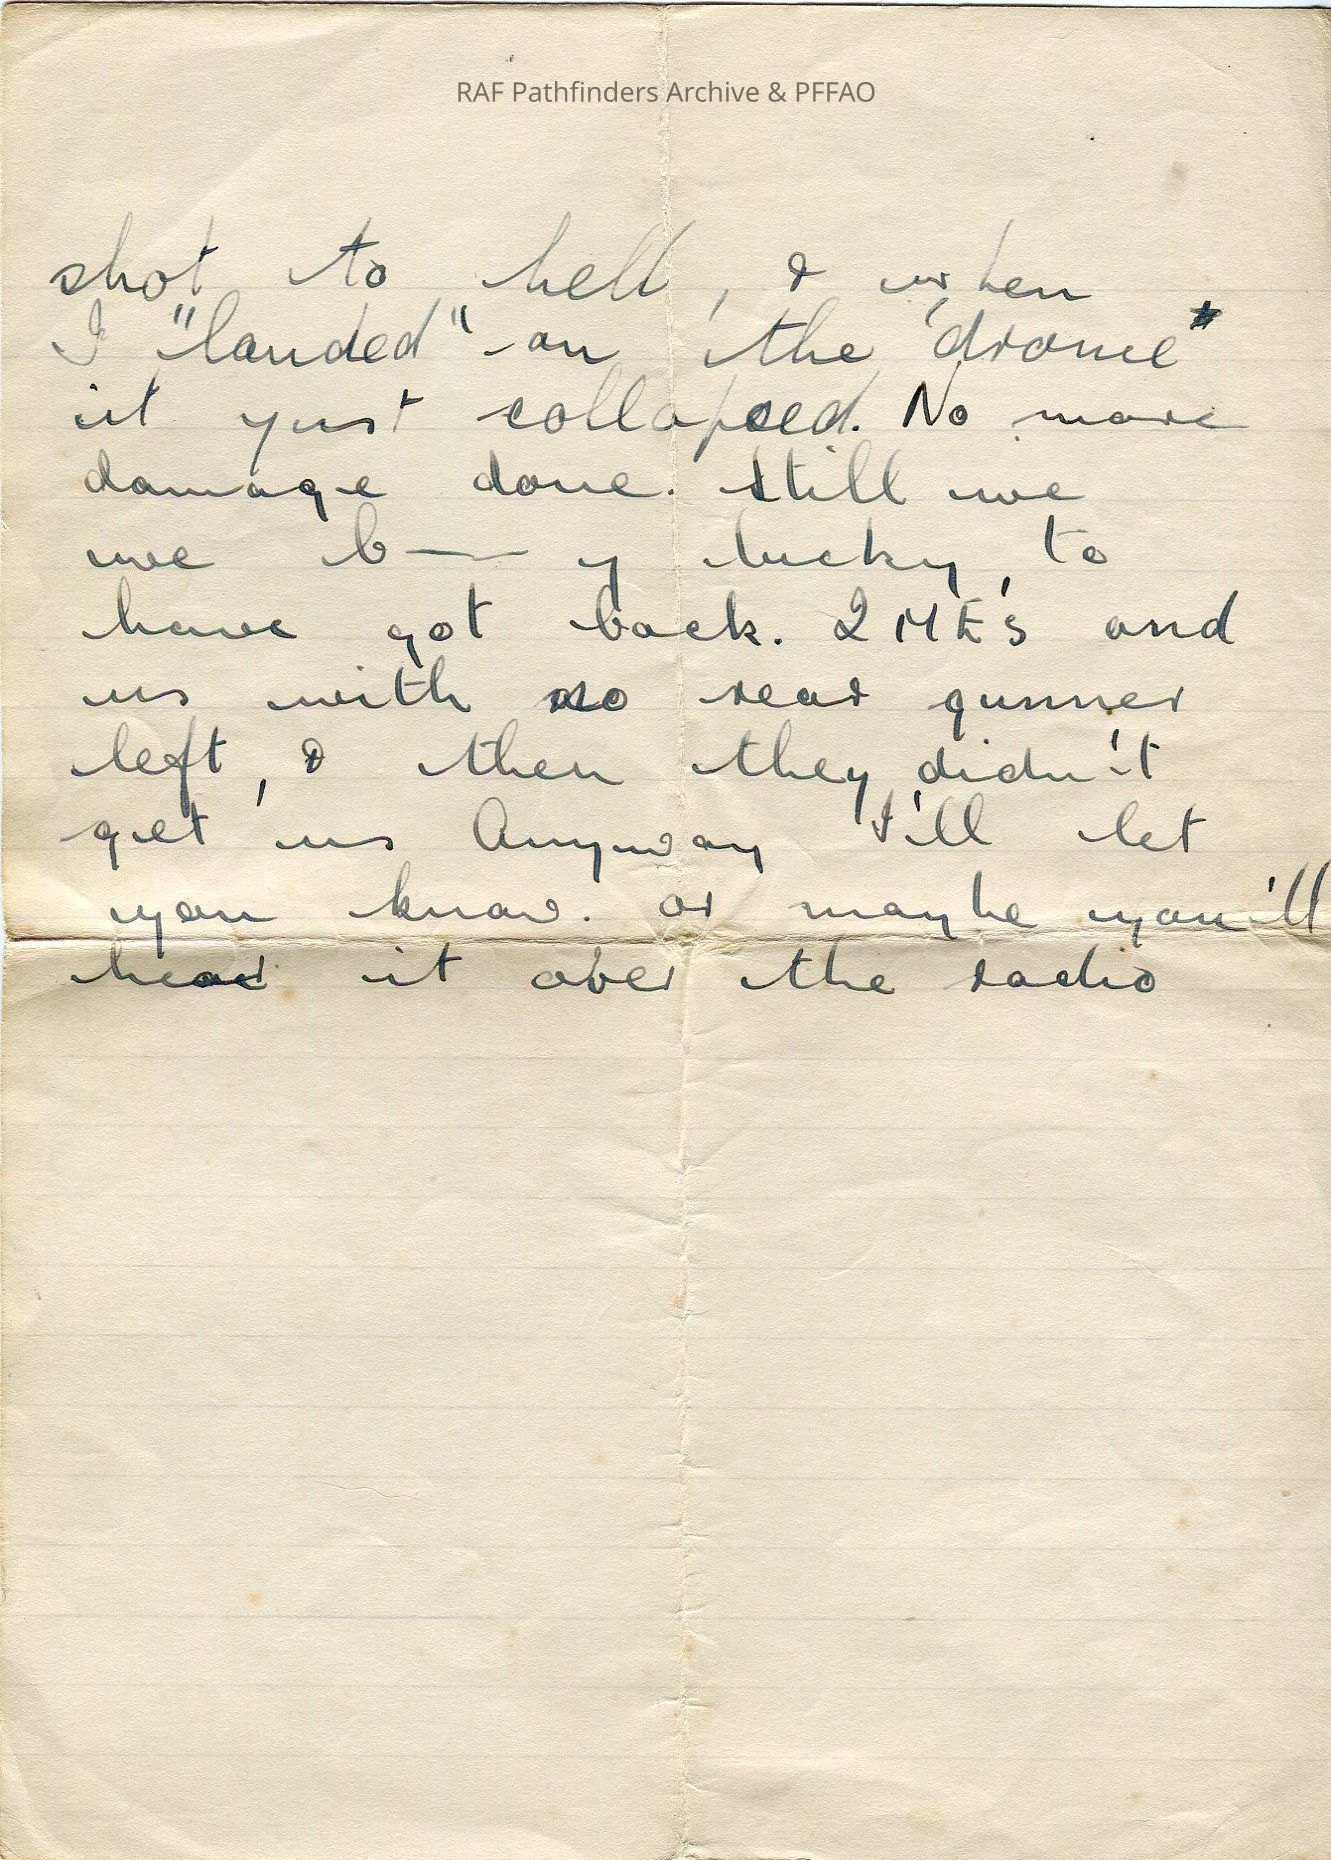 RAF Pathfinders Archive & PFFAO
shot to hell, & when
I "landed" on the 'drome
it just collapsed. No more
damage done. Still we
we b—y lucky to
have got back. 2 ME's and
us with no rear gunner
left, & then they didn't
get us Anyway I'll let
you know. or maybe you'll
hear it over the radio